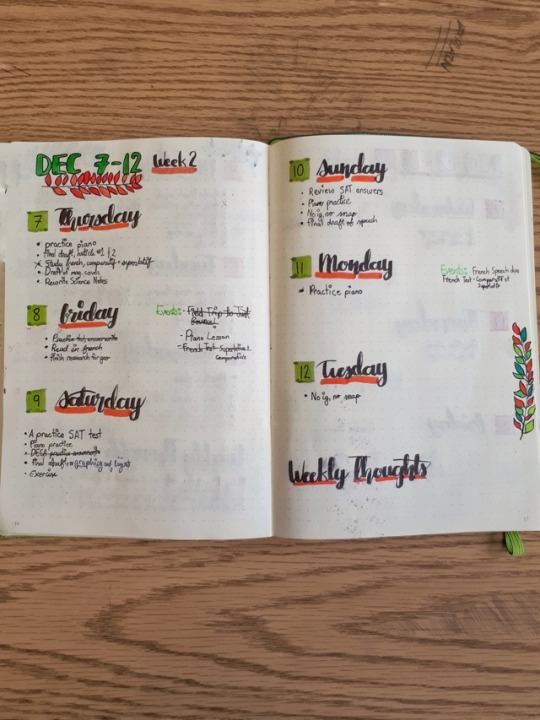 DEC 7-12 Week 2
7 Thursday
• practice piano
• final draft, article #1 & 2
× Study french, comparatif + superlatif
• Draft of mag. cover
• Rewrite Science Notes
8 Friday
• Read in french
• finish research for ger
Events: - Field Trip to Just
Bounce!
- Piano Lesson
- French Test - Superlatif &
Comparatif
9 Saturday
• A practice SAT test
• Piano practice
• DECA practice
• final draft graphics and logos
• exercise
10 Sunday
• Review SAT answers
• Piano practice
• No ig, or snap
• final draft of speech
11 Monday
• Practice piano
Events: French Speech due
French Test - Comparatif et
Superlatif
12 Tuesday
• No ig, or snap
Weekly Thoughts